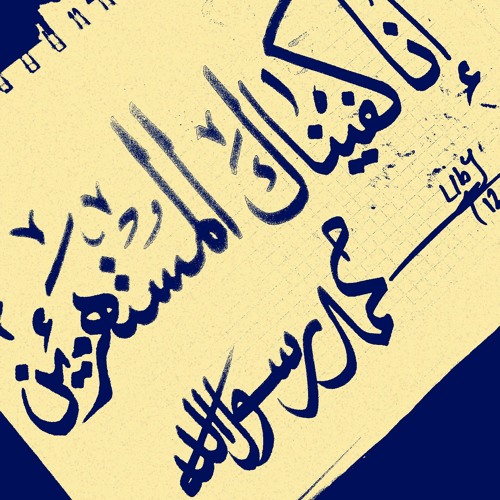 إنا كفيناك المستهزئين
محمد رسول الله
Liby
12